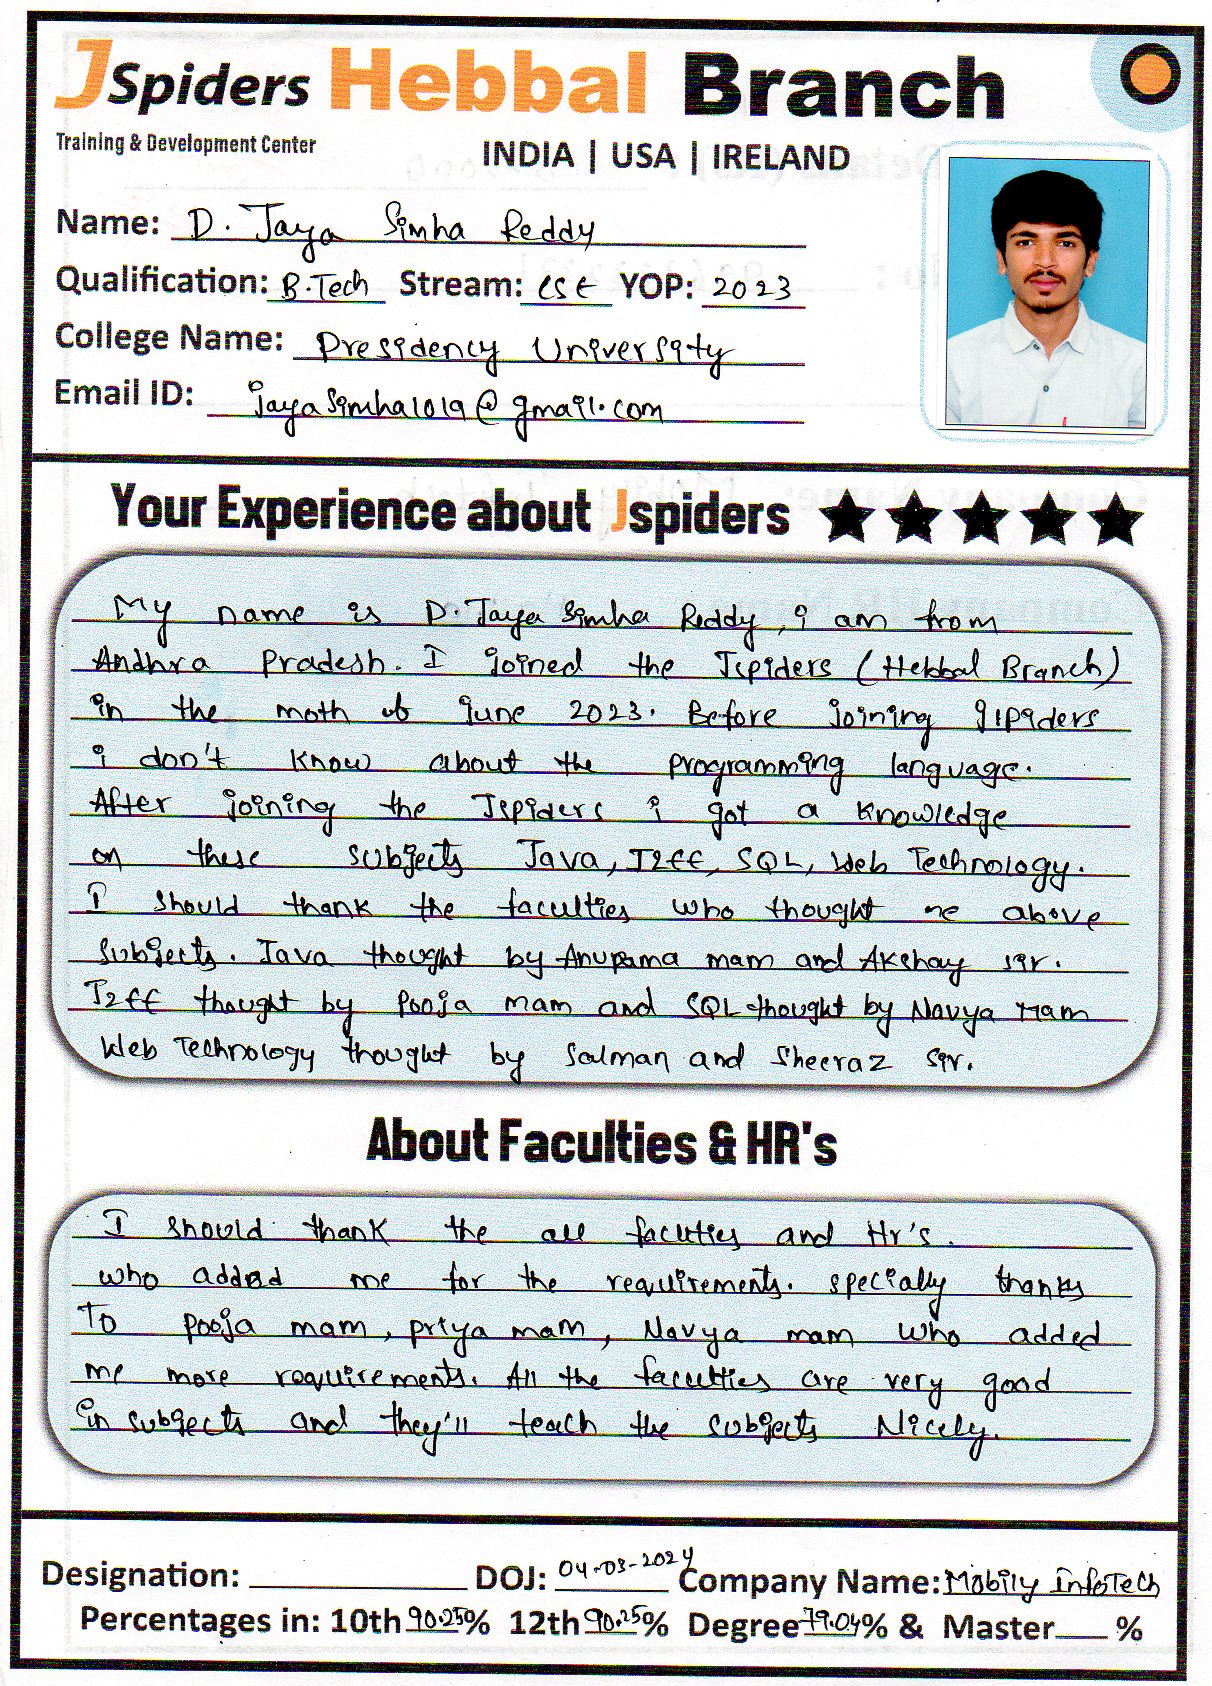 JSpiders Hebbal Branch
Training & Development Center
INDIA | USA | IRELAND
Name: D. Jaya Simha Reddy
Qualification: B.Tech Stream: CSE YOP: 2023
College Name: Presidency University
Email ID: jayasimha1019@gmail.com
Your Experience about Jspiders
My name is D. Jaya Simha Reddy, i am from
Andhra Pradesh. I joined the Jspiders (Hebbal Branch)
in the moth of june 2023. Before joining
i don't know about the programming language.
After joining the Jspiders i got a knowledge
on these subjects Java, J2EE, SQL, Web Technology.
I should thank the faculties who thought me above
subjects. Java thought by Anupama mam and Akshay sir.
J2EE thought by Pooja mam and SQL thought by Navya Mam
Web Technology thought by Salman and Sheeraz sir.
About Faculties & HR's
I should thank the all faculties and Hr's.
who added me for the requirements. specially thanks
To Pooja mam, priya mam, Navya mam who added
me more requirements. All the faculties are very good
in subjects and they'll teach the subjects Nicely.
Designation: DOJ: 04-03-2024 Company Name: Mobily InfoTech
Percentages in: 10th 90.25% 12th 90.25% Degree 79.04% & Master %